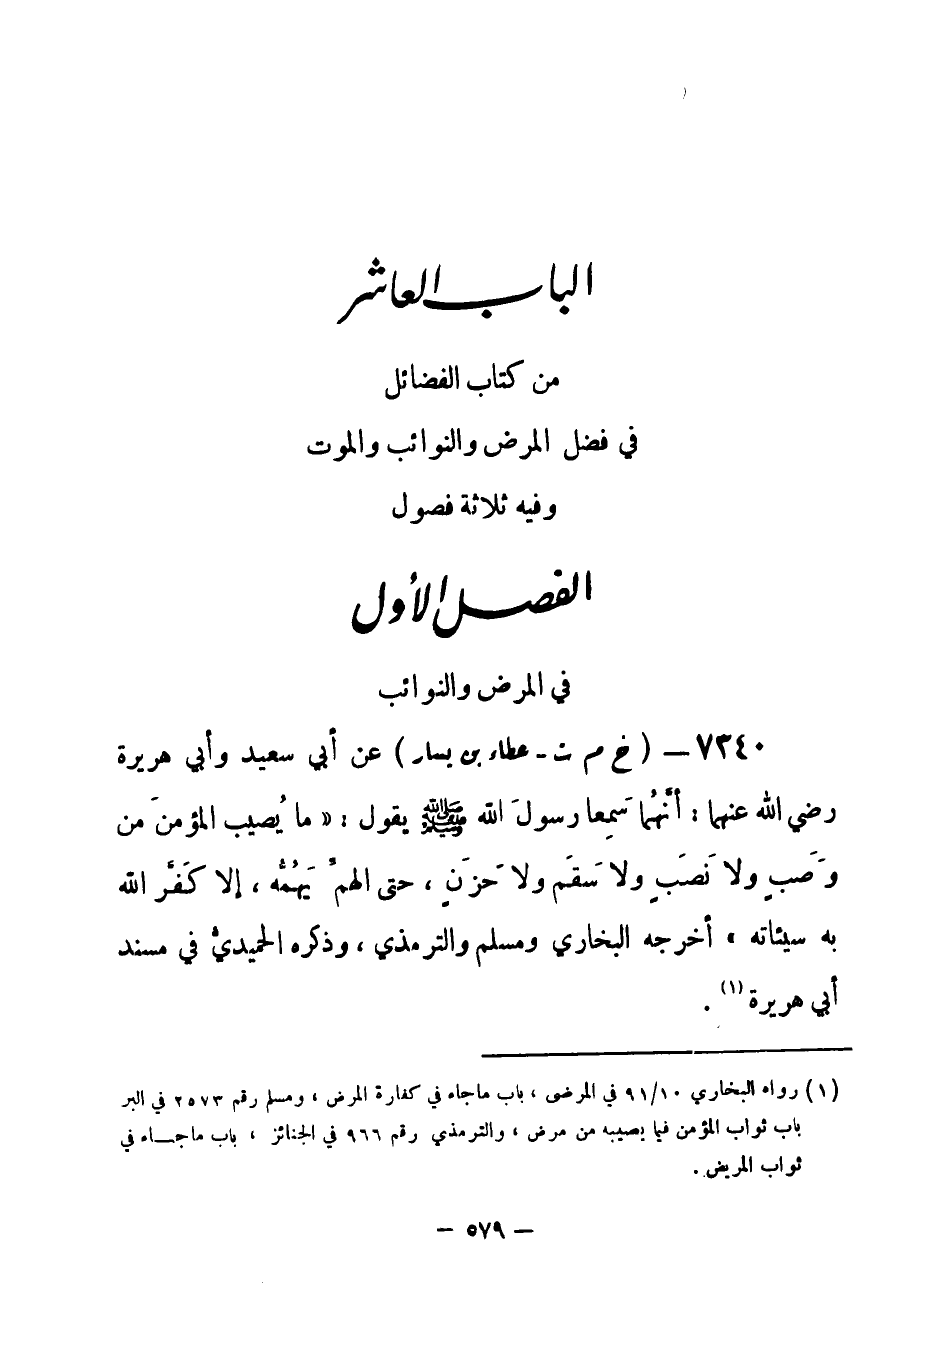 الباب العاشر
من كتاب الفضائل
في فضل المرض والنوائب والموت
وفيه ثلاثة فصول
الفصل الأول
في المرض والنوائب
٧٣٤٠ – ( خ م ت - عطاء بن يسار ) عن أبي سعيد وأبي هريرة
رضي الله عنهما : أَنَّهُما سَمِعا رسولَ الله ﷺ يقول : « ما يُصيب المؤمنَ من
وَصَبٍ ولا نَصَبٍ ولا سَقَمٍ ولا حَزَنٍ ، حتى الهمِّ يَهُمُّه ، إلا كَفَّرَ الله
به سيئاته » أخرجه البخاري ومسلم والترمذي ، وذكره الحميديُّ في مسند
أبي هريرة (١) .
(١) رواه البخاري ٩١/١٠ في المرضى ، باب ماجاء في كفارة المرض ، ومسلم رقم ٢٥٧٣ في البر
باب ثواب المؤمن فيما يصيبه من مرض ، والترمذي رقم ٩٦٦ في الجنائز ، باب ماجاء في
ثواب المريض .
– ٥٧٩ –